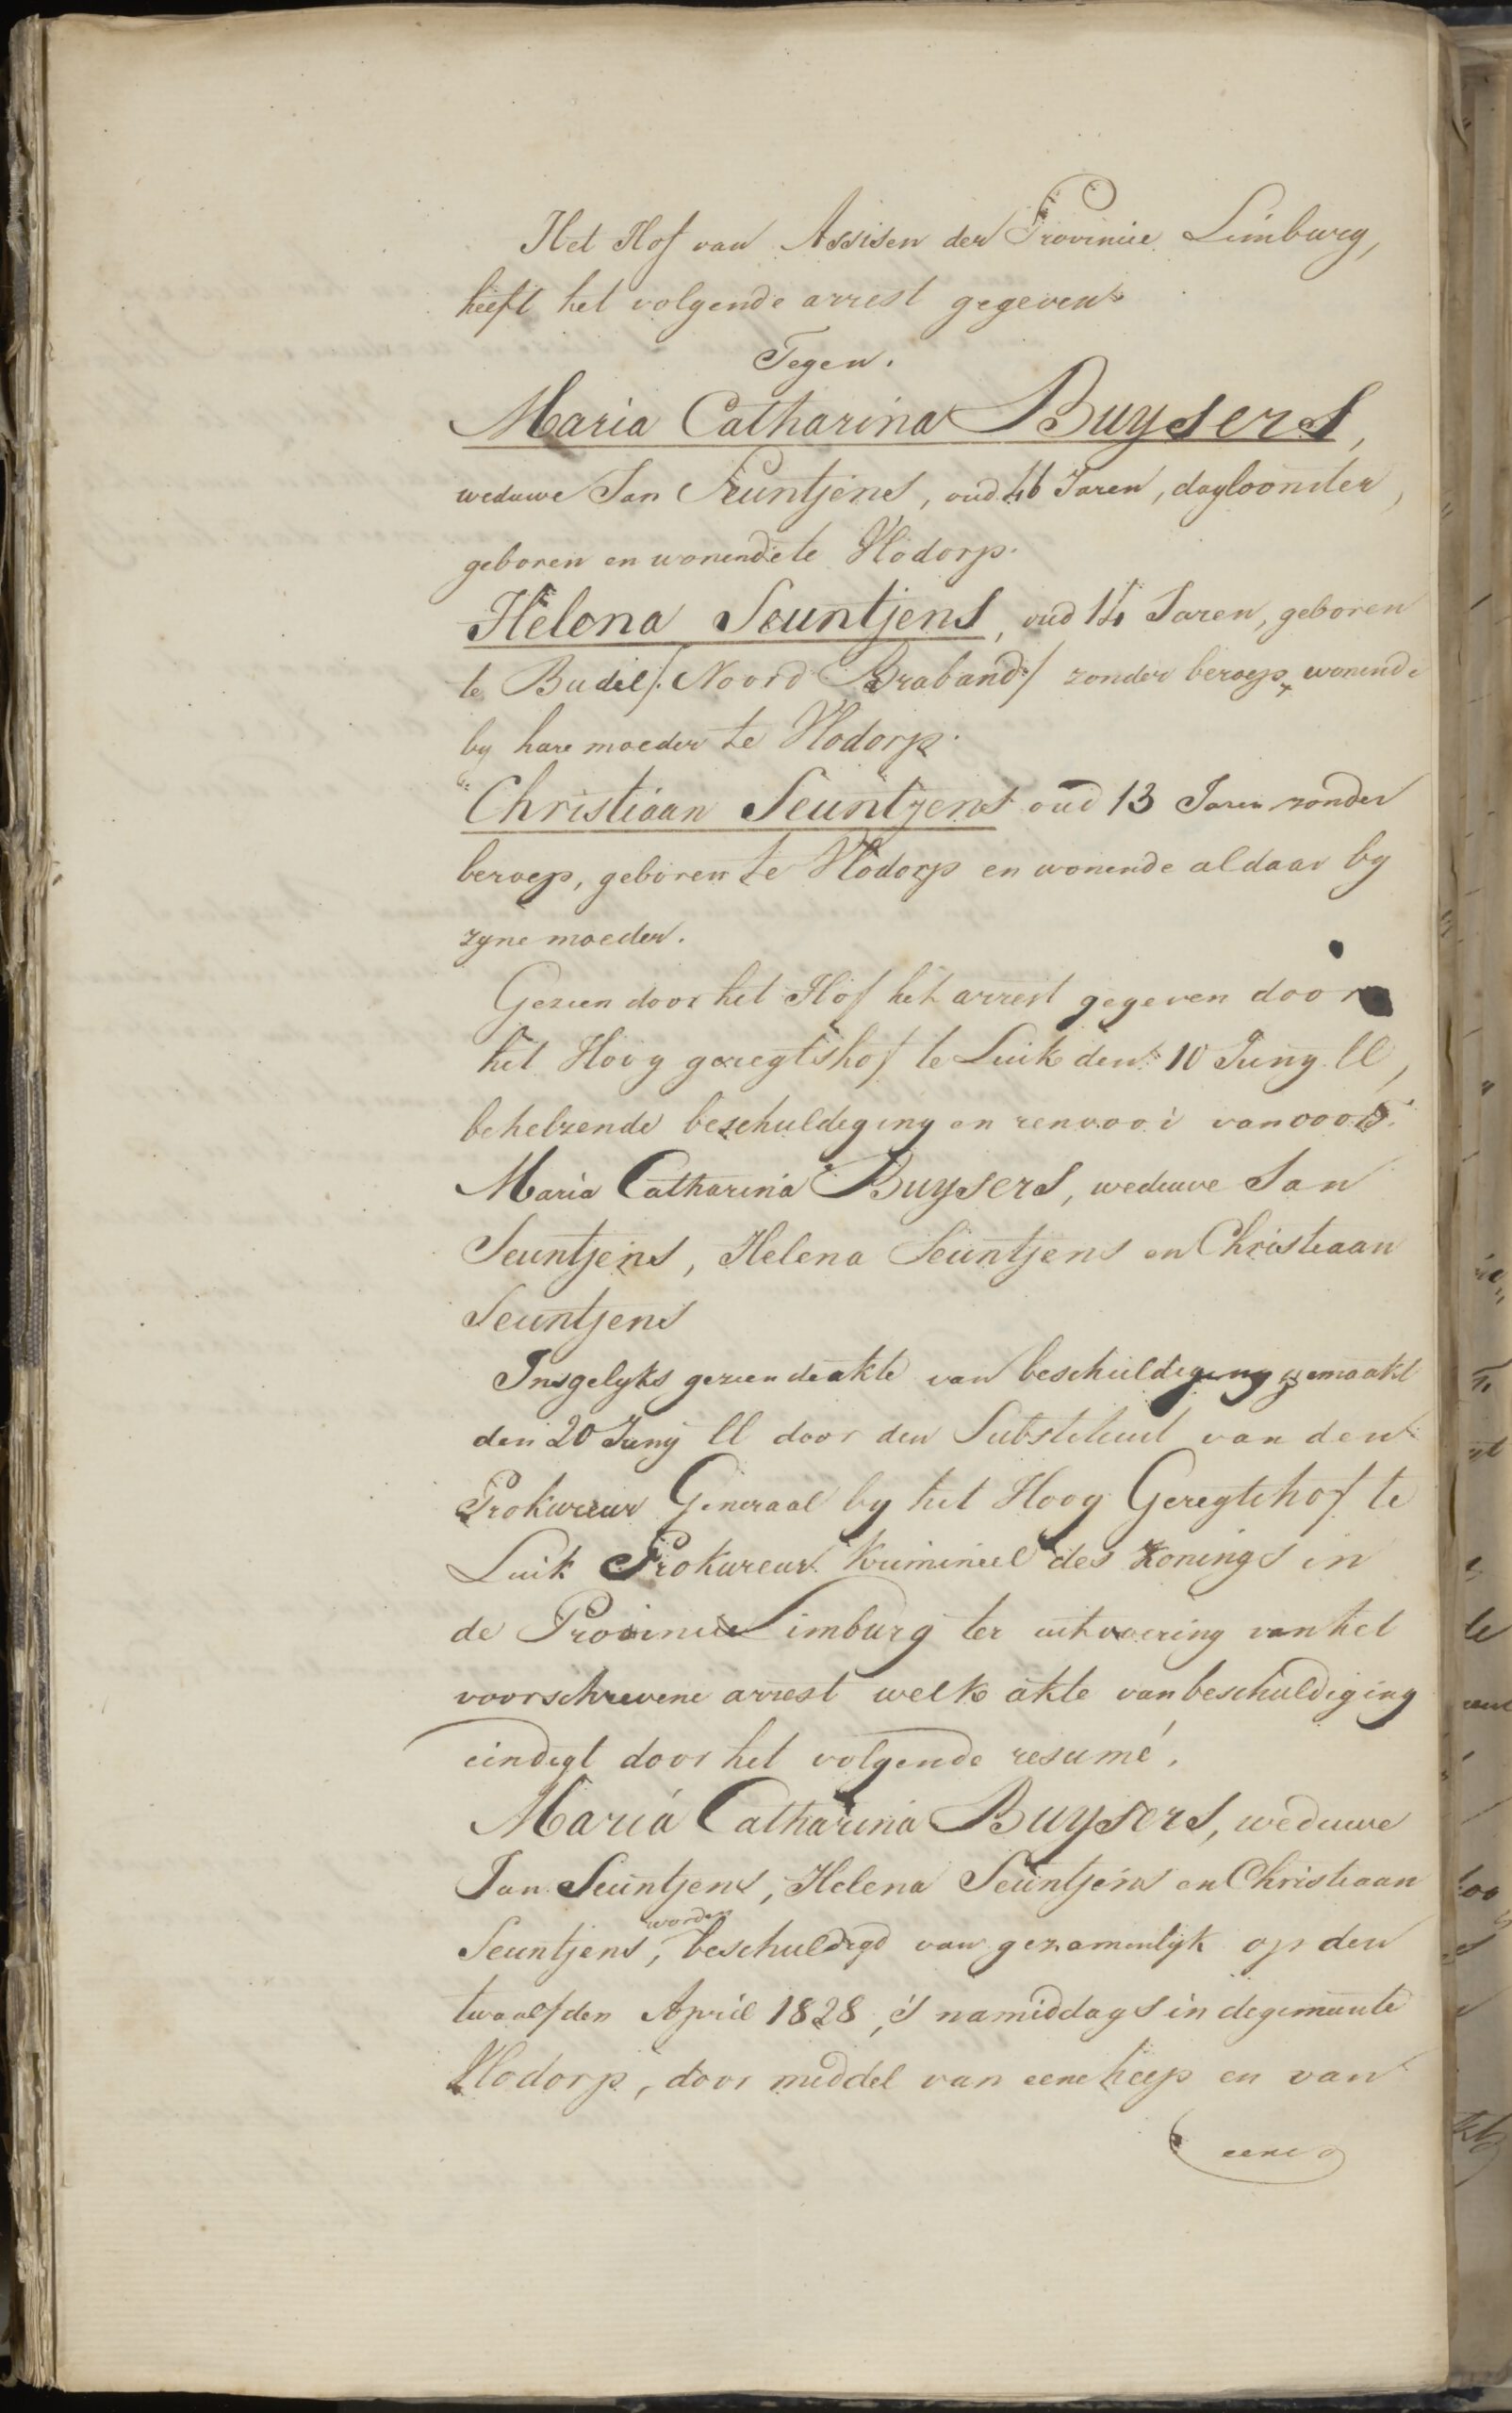 Het Hof van Assisen der Provincie Limburg,
heeft het volgende arrest gegeven
Tegen.
Maria Catharina Buysers,
weduwe Jan Seuntjens, oud 46 Jaren, dagloonster,
geboren en wonende te Vlodorp.
Helena Seuntjens, oud 14 Jaren, geboren
te Budel /: Noord Braband :/ zonder beroep, wonende
by hare moeder te Vlodorp.
Christiaan Seuntjens oud 13 Jaren zonder
beroep, geboren te Vlodorp en wonende aldaar by
zyne moeder.
Gezien door het Hof het arrest gegeven door
het Hoog geregtshof te Luik den 10 Juny ll,
behelzende beschuldiging en renvooi van voors.
Maria Catharina Buysers, weduwe Jan
Seuntjens, Helena Seuntjens en Christiaan
Seuntjens
Insgelyks gezien de akte van beschuldiging gemaakt
den 20 Juny ll door den Substituut van den
Prokureur Generaal by het Hoog Geregtshof te
Luik Prokureur Krimineel des Konings in
de Provincie Limburg ter uitvoering van het
voorschrevene arrest welk akte van beschuldiging
eindigt door het volgende resumé.
Maria Catharina Buysers, weduwe
Jan Seuntjens, Helena Seuntjens en Christiaan
Seuntjens, worden beschuldigd van gezamenlyk op den
twaalfden April 1828, 's namiddags in de gemeente
Vlodorp, door middel van eene heep en van
eene